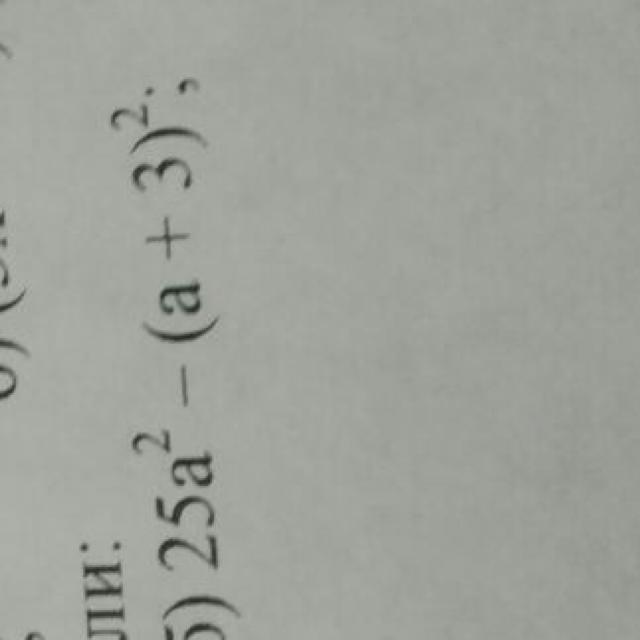 ли:
б) 25a² − (a + 3)²;